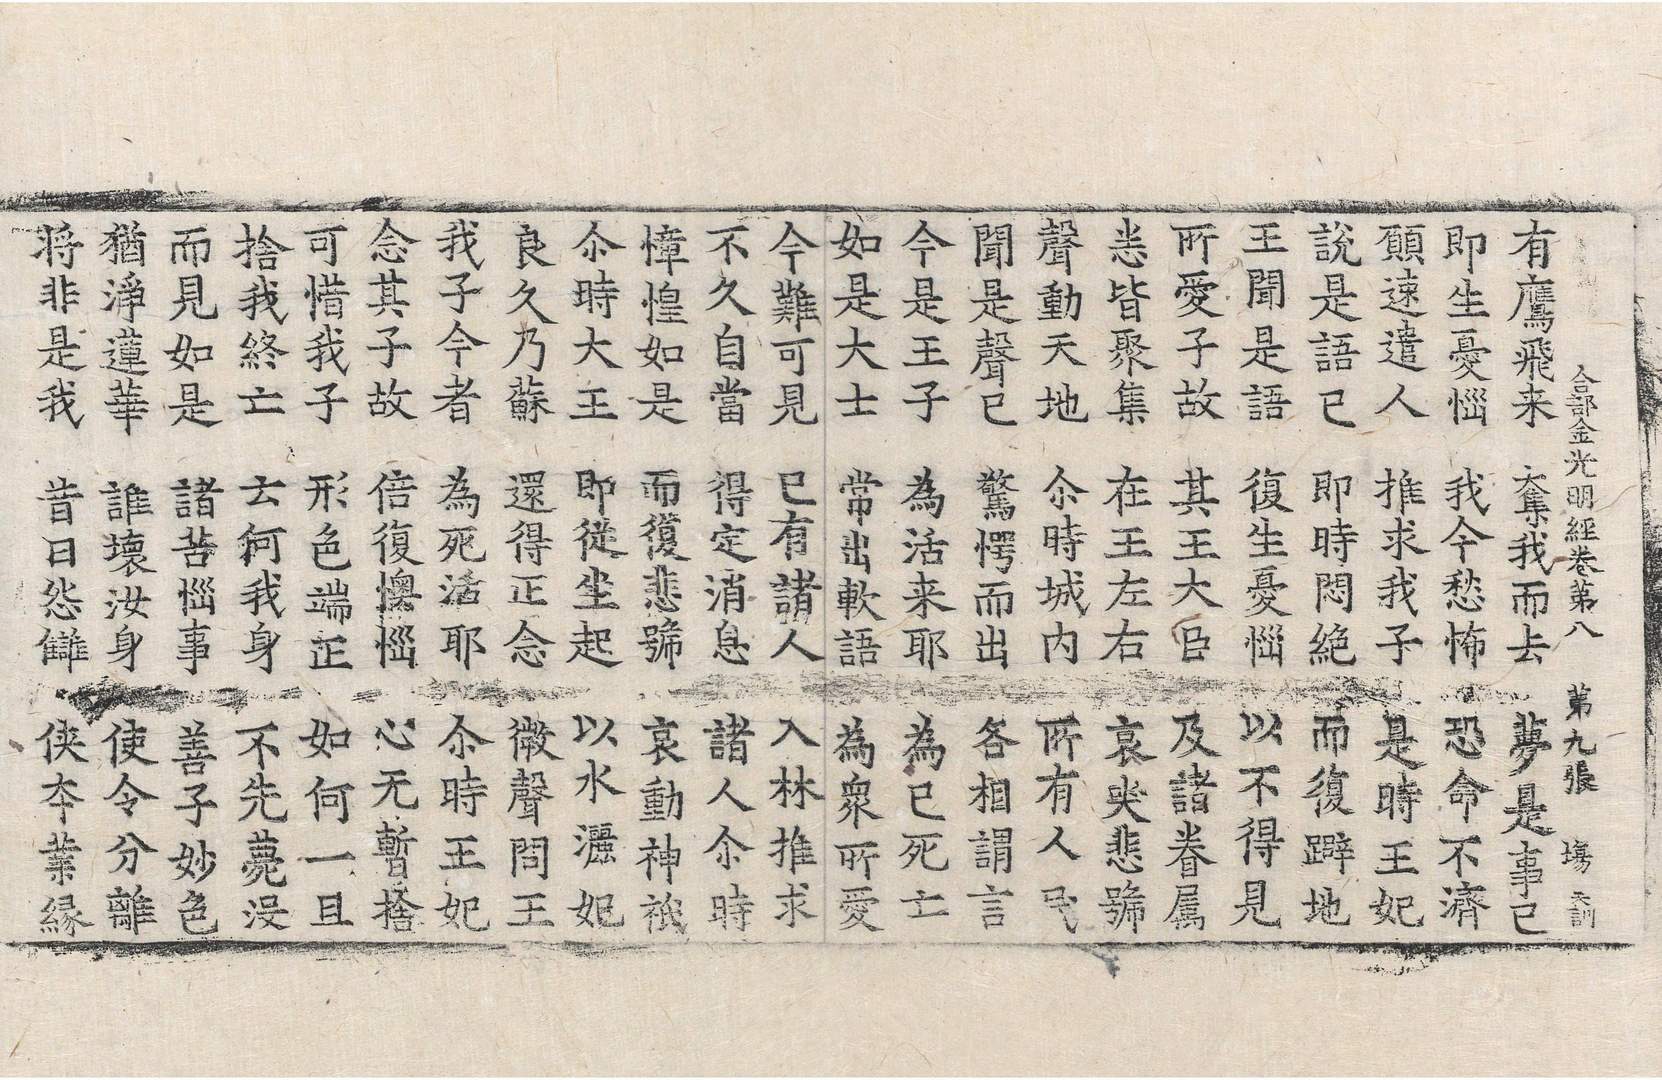 合部金光明經卷第八　第九張　塲　天訓
有鷹飛来　奪我而去　夢是事已
即生憂惱　我今愁怖　恐命不濟
願速遣人　推求我子　是時王妃
說是語已　即時悶絕　而復躃地
王聞是語　復生憂惱　以不得見
所愛子故　其王大臣　及諸眷属
悉皆聚集　在王左右　哀哭悲號
聲動天地　尒時城内　所有人民
聞是聲已　驚愕而出　各相謂言
今是王子　為活来耶　為已死亡
如是大士　常出軟語　為衆所愛
今難可見　已有諸人　入林推求
不久自當　得定消息　諸人尒時
慞惶如是　而復悲號　哀動神祇
尒時大王　即從坐起　以水灑妃
良久乃蘇　還得正念　微聲問王
我子今者　為死活耶　尒時王妃
念其子故　倍復懊惱　心无暫捨
可惜我子　形色端正　如何一旦
捨我終亡　云何我身　不先薨没
而見如是　諸苦惱事　善子妙色
猶淨蓮華　誰壞汝身　使令分離
将非是我　昔日怨讎　侠本業緣